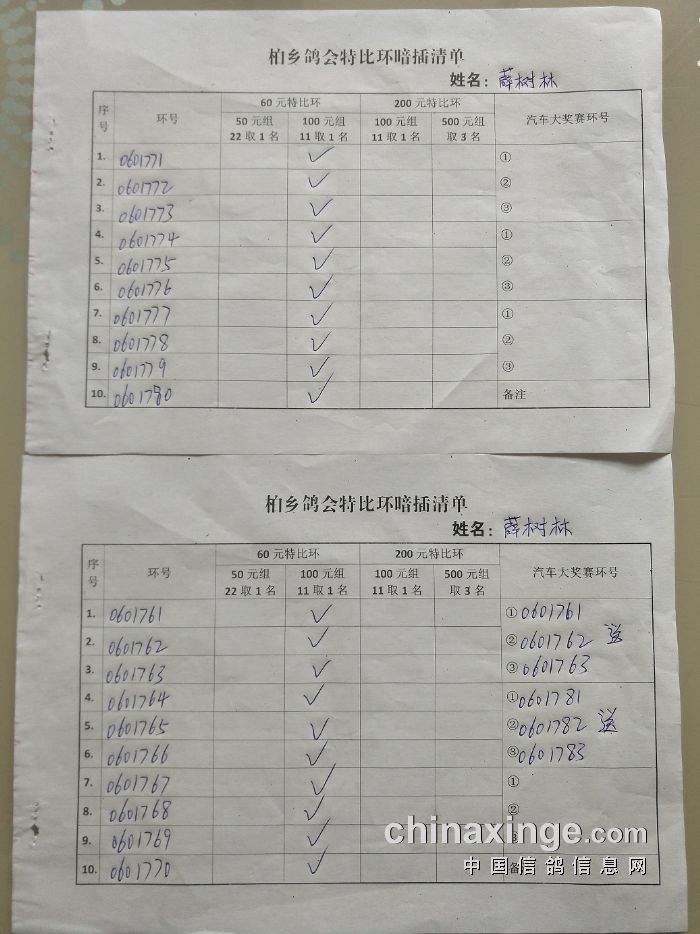 柏乡鸽会特比环暗插清单
姓名：薛树林
序号 环号 60 元特比环 200 元特比环 汽车大奖赛环号
50 元组 100 元组 100 元组 500 元组
22 取 1 名 11 取 1 名 11 取 1 名 取 3 名
1. 0601771 ✓ ①
2. 0601772 ✓ ②
3. 0601773 ✓ ③
4. 0601774 ✓ ①
5. 0601775 ✓ ②
6. 0601776 ✓ ③
7. 0601777 ✓ ①
8. 0601778 ✓ ②
9. 0601779 ✓ ③
10. 0601780 ✓ 备注
柏乡鸽会特比环暗插清单
姓名：薛树林
序号 环号 60 元特比环 200 元特比环 汽车大奖赛环号
50 元组 100 元组 100 元组 500 元组
22 取 1 名 11 取 1 名 11 取 1 名 取 3 名
1. 0601761 ✓ ①0601761
2. 0601762 ✓ ②0601762 送
3. 0601763 ✓ ③0601763
4. 0601764 ✓ ①0601781
5. 0601765 ✓ ②0601782 送
6. 0601766 ✓ ③0601783
7. 0601767 ✓ ①
8. 0601768 ✓ ②
9. 0601769 ✓ ③
10. 0601770 ✓ 备
chinaxinge.com
中国信鸽信息网